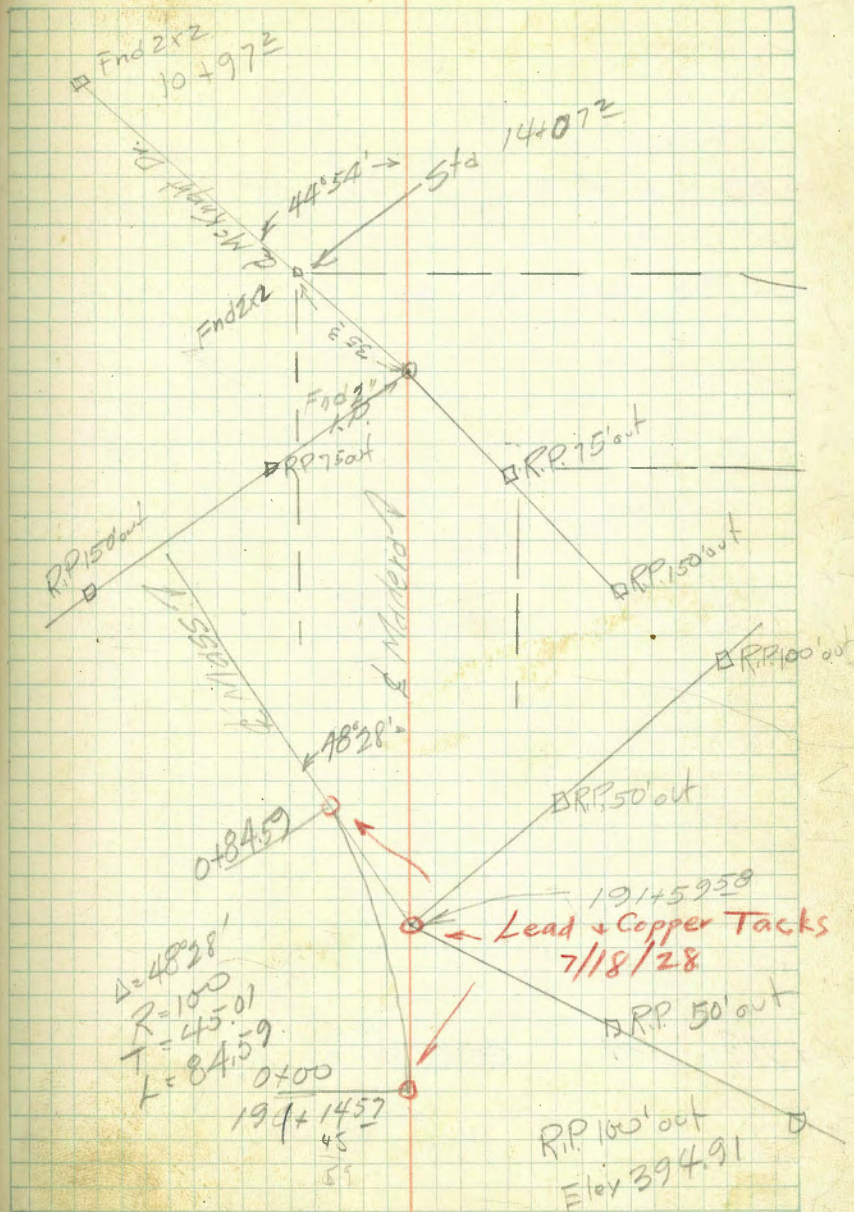 Fnd 2x2
10+97²
14+07²
Std
44°54'
℄ McKnight Dr.
Fnd 2x2
35.3
Fnd 2"
I.P.
R.P. 75 out
R.P. 75' out
R.P. 150' out
R.P. 150' out
℄ Mass.
℄ Madera
R.P. 100' out
48°28'
R.P. 50' out
0+84.59
191+59 58
Lead + Copper Tacks
7/18/28
Δ=48°28'
R=100
T=45.01
L=84.59
R.P. 50' out
0+00
191+14 57
45
59
R.P. 100' out
Elev 394.91